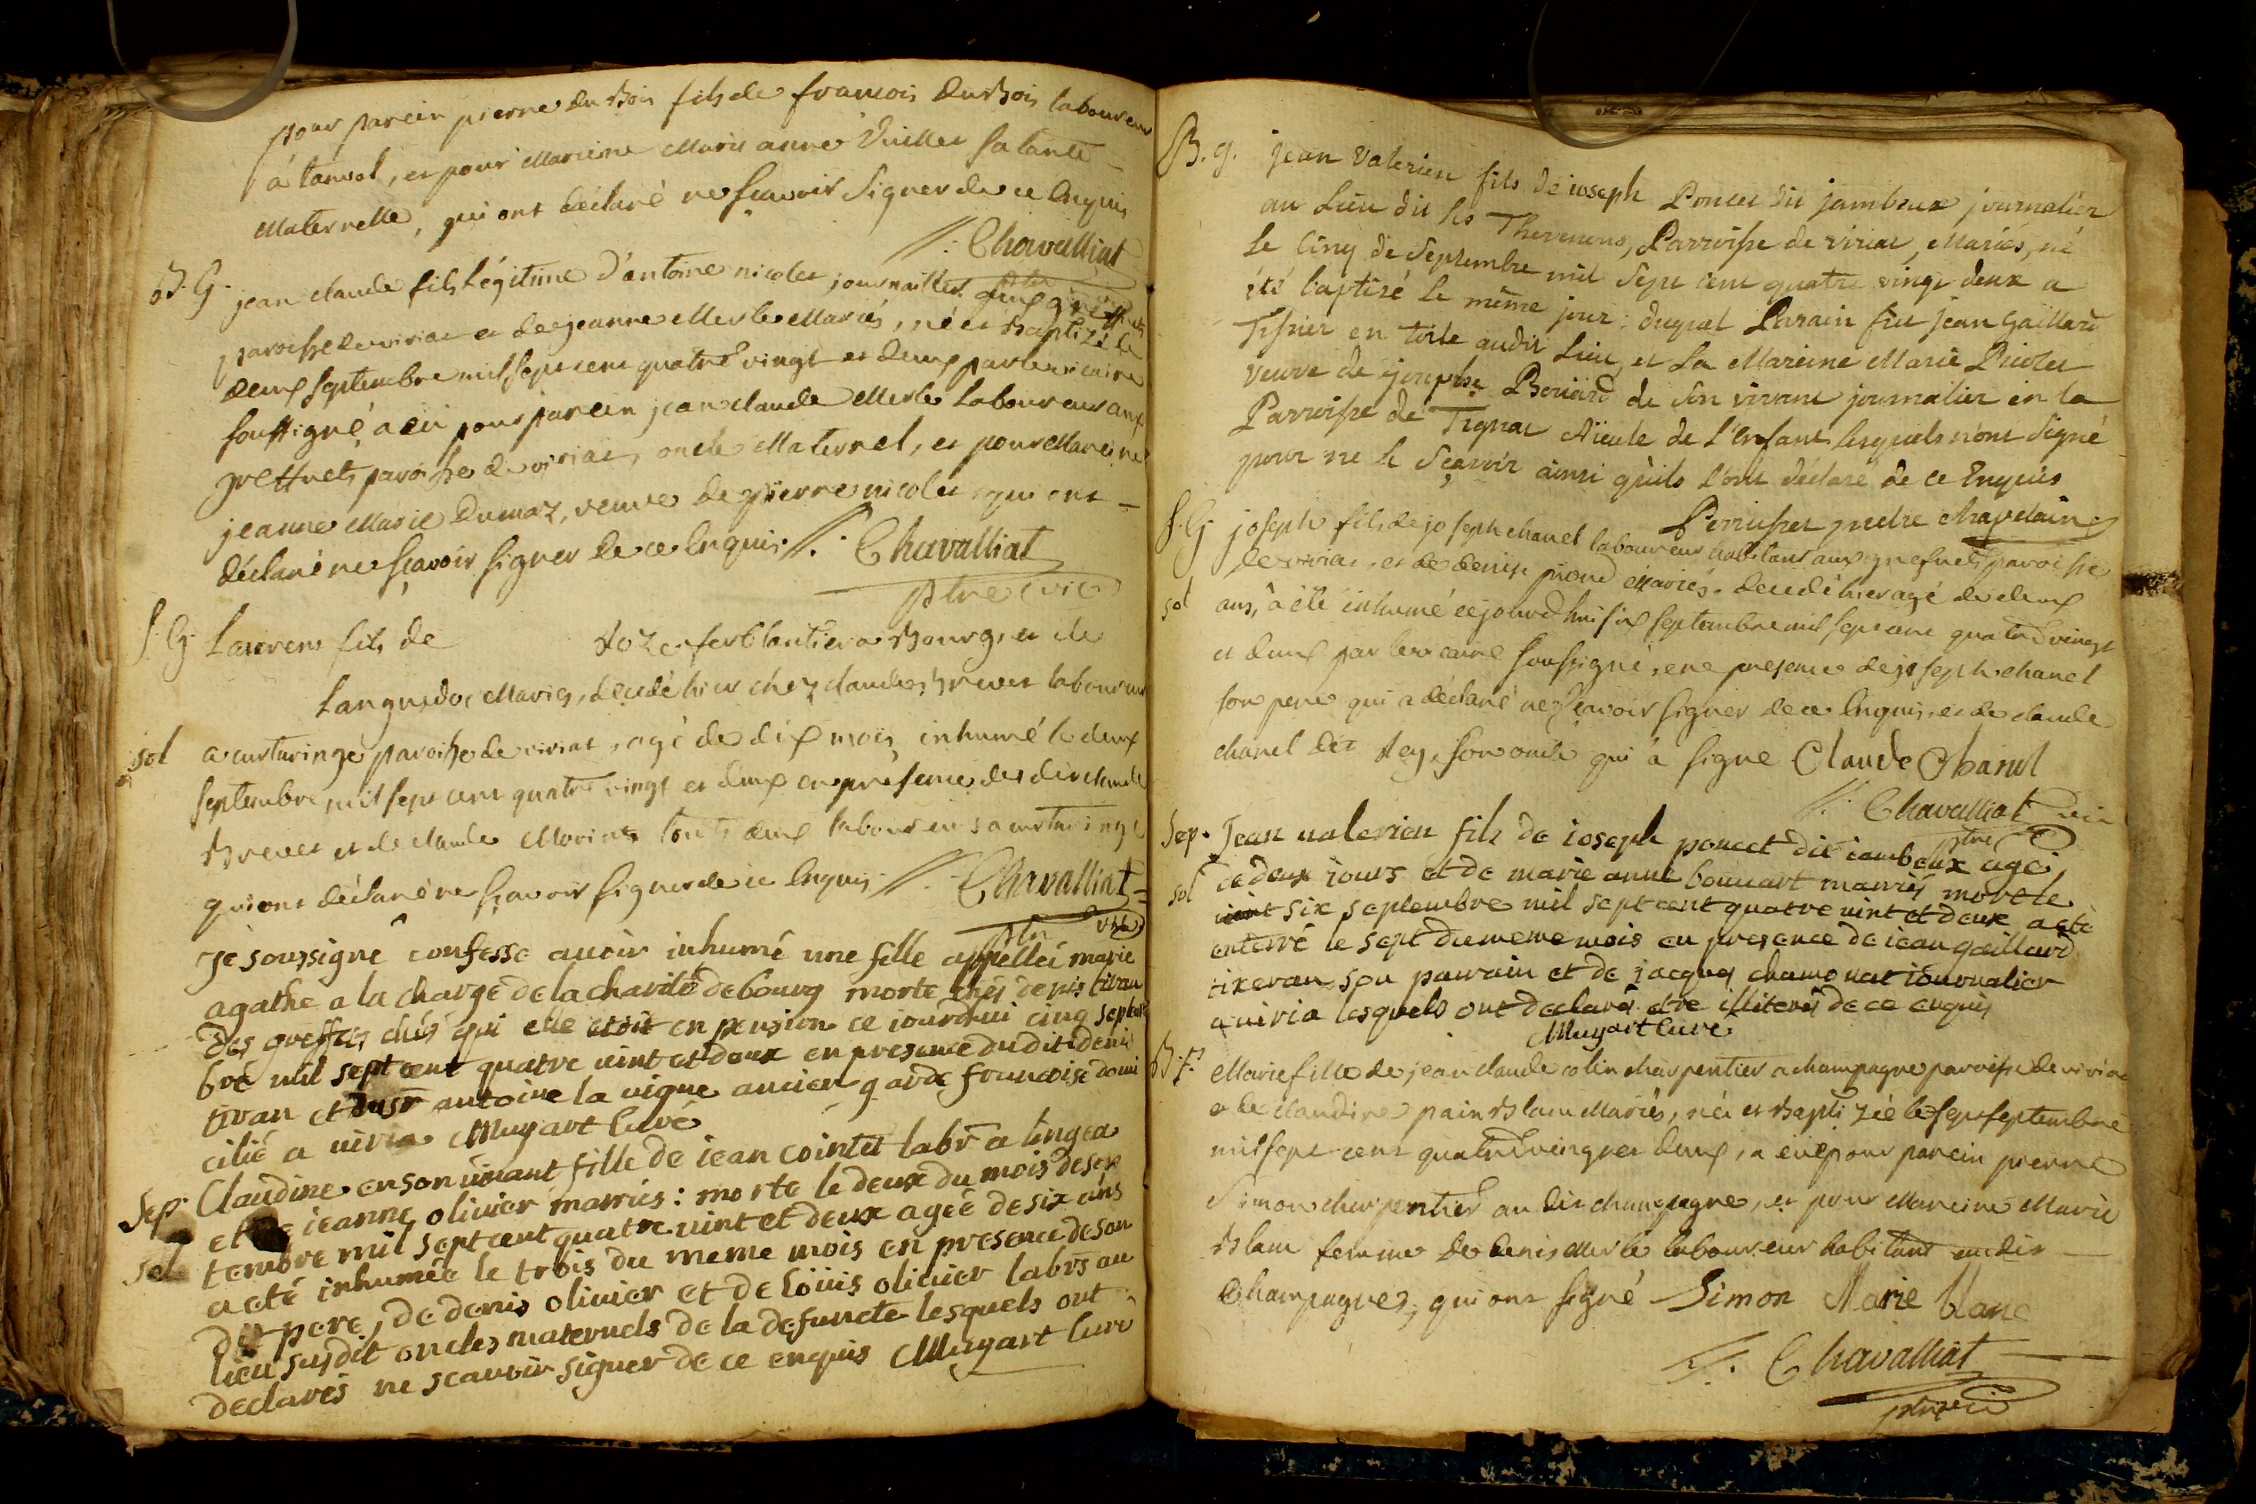 pour parein pierre du Bois fils de francois du Bois laboureur
a tanvol, et pour Mareine Marie anne Vuillet sa tante
Maternelle, qui ont déclaré ne scavoir signer de ce Enquis
Chavalliat
B. G. jean claude fils légitime d'antoine nicolet journaillier aux greffets
paroisse de viriat et de jeanne Merle Mariés, né et Baptizé le
deux septembre mil sept cent quatre vingt et deux par le vicaire
soussigné a eu pour parein jean claude Merle Laboureur aux
greffiets paroisse de viriat, oncle Maternel, et pour Mareine
jeanne Marie Dumaz, veuve de pierre nicolet qui ont
déclaré ne sçavoir signer de ce Enquis. Chavalliat
ptre vic
S. G Laurent fils de ferblantier a Bourg, et de
Languedoc Mariés, decedé hier chez claude Brevet laboureur
sol a curtaringe paroisse de viriat, agé de dix mois inhumé le deux
septembre mil sept cent quatre vingt et deux en présence des dits claude
Brevet et de claude Morin touts deux laboureurs a curtaringe
qui ont déclaré ne sçavoir signer de ce Enquis. Chavalliat
ptre vic
je soussigné confesse auoir inhumé une fille appellée marie
agathe a la charge de la charité de bourg morte chés denis tivan
des greffets chés qui elle etoit en pension ce iourdhui cinq septem
bre mil sept cent quatre uint et deux en presence dudit denis
tivan et de sr antoine la uigne ancien garde francoise domi
cilié a uiria Mugart Curé
Sep. Claudine en son uiuant fille de iean cointet labr a lingea
et de ieanne oliuier marriés: morte le deux du mois de sep
sol tembre mil sept cent quatre uint et deux agée de six ans
a eté inhumée le trois du meme mois en presence de son
dit pere, de denis oliuier et de loüis oliuier labrs au
lieu susdit oncles maternels de la defuncte lesquels ont
declarés ne scauoir signer de ce enquis Mugart Curé
B. g. jean Valerien fils de ioseph Poncet dit jambeux journalier
au Lieu dit les Thevenons, Parroisse de viriat, Mariés, né
le Cinq de Septembre mil Sept cent quatre vingt deux a
été baptisé le même jour: duquel Parain fut jean Gaillard
Tissier en toile audit Lieu, et la Mareine Marie Picolet
veuve de joseph Bouiard de son vivant journalier en la
Parroisse de Tignat Aïeule de l'Enfant lesquels n'ont Signé
pour ne le Sçavoir ainsi qu'ils l'ont déclaré de ce Enquis
Perruset pretre chapelain
S. G joseph fils de joseph chanel laboureur habitant aux greffiets paroisse
de viriat, et de denise Mariés. decedé hier agé de deux
sol ans, a été inhumé cejourdhui six septembre mil sept cent quatre vingt
et deux par le vicaire soussigné, en presence de joseph chanel
son pere qui a déclaré ne sçavoir signer de ce Enquis, et de claude
chanel dit Rey, son oncle qui a signé Claude Chanel
Chavalliat vic
ptre
Sep. Jean ualerien fils de ioseph poncet dit iambeux agé
sol de deux iours et de marie anne bouuart marriés mort le
six septembre mil sept cent quatre uint et deux a eté
enterré le sept du meme mois en presence de iean gaillard
tixeran son parrain et de jacques chamonat iournalier
a uiria lesquels ont declarés etre illiterés de ce enquis
Mugart Cure
B. f. Marie fille de jean claude colin charpentier a champagne paroisse de viriat
et de claudine pain Blanc Mariés, née et Baptizée le sept septembre
mil sept cent quatre vingt et deux, a eu pour parein pierre
Simon charpentier au dit champagne, et pour Mareine Marie
Blanc femme de denis Merle laboureur habitant audit
Champagne; qui ont signé Simon Marie blanc
Chavalliat
ptre vic